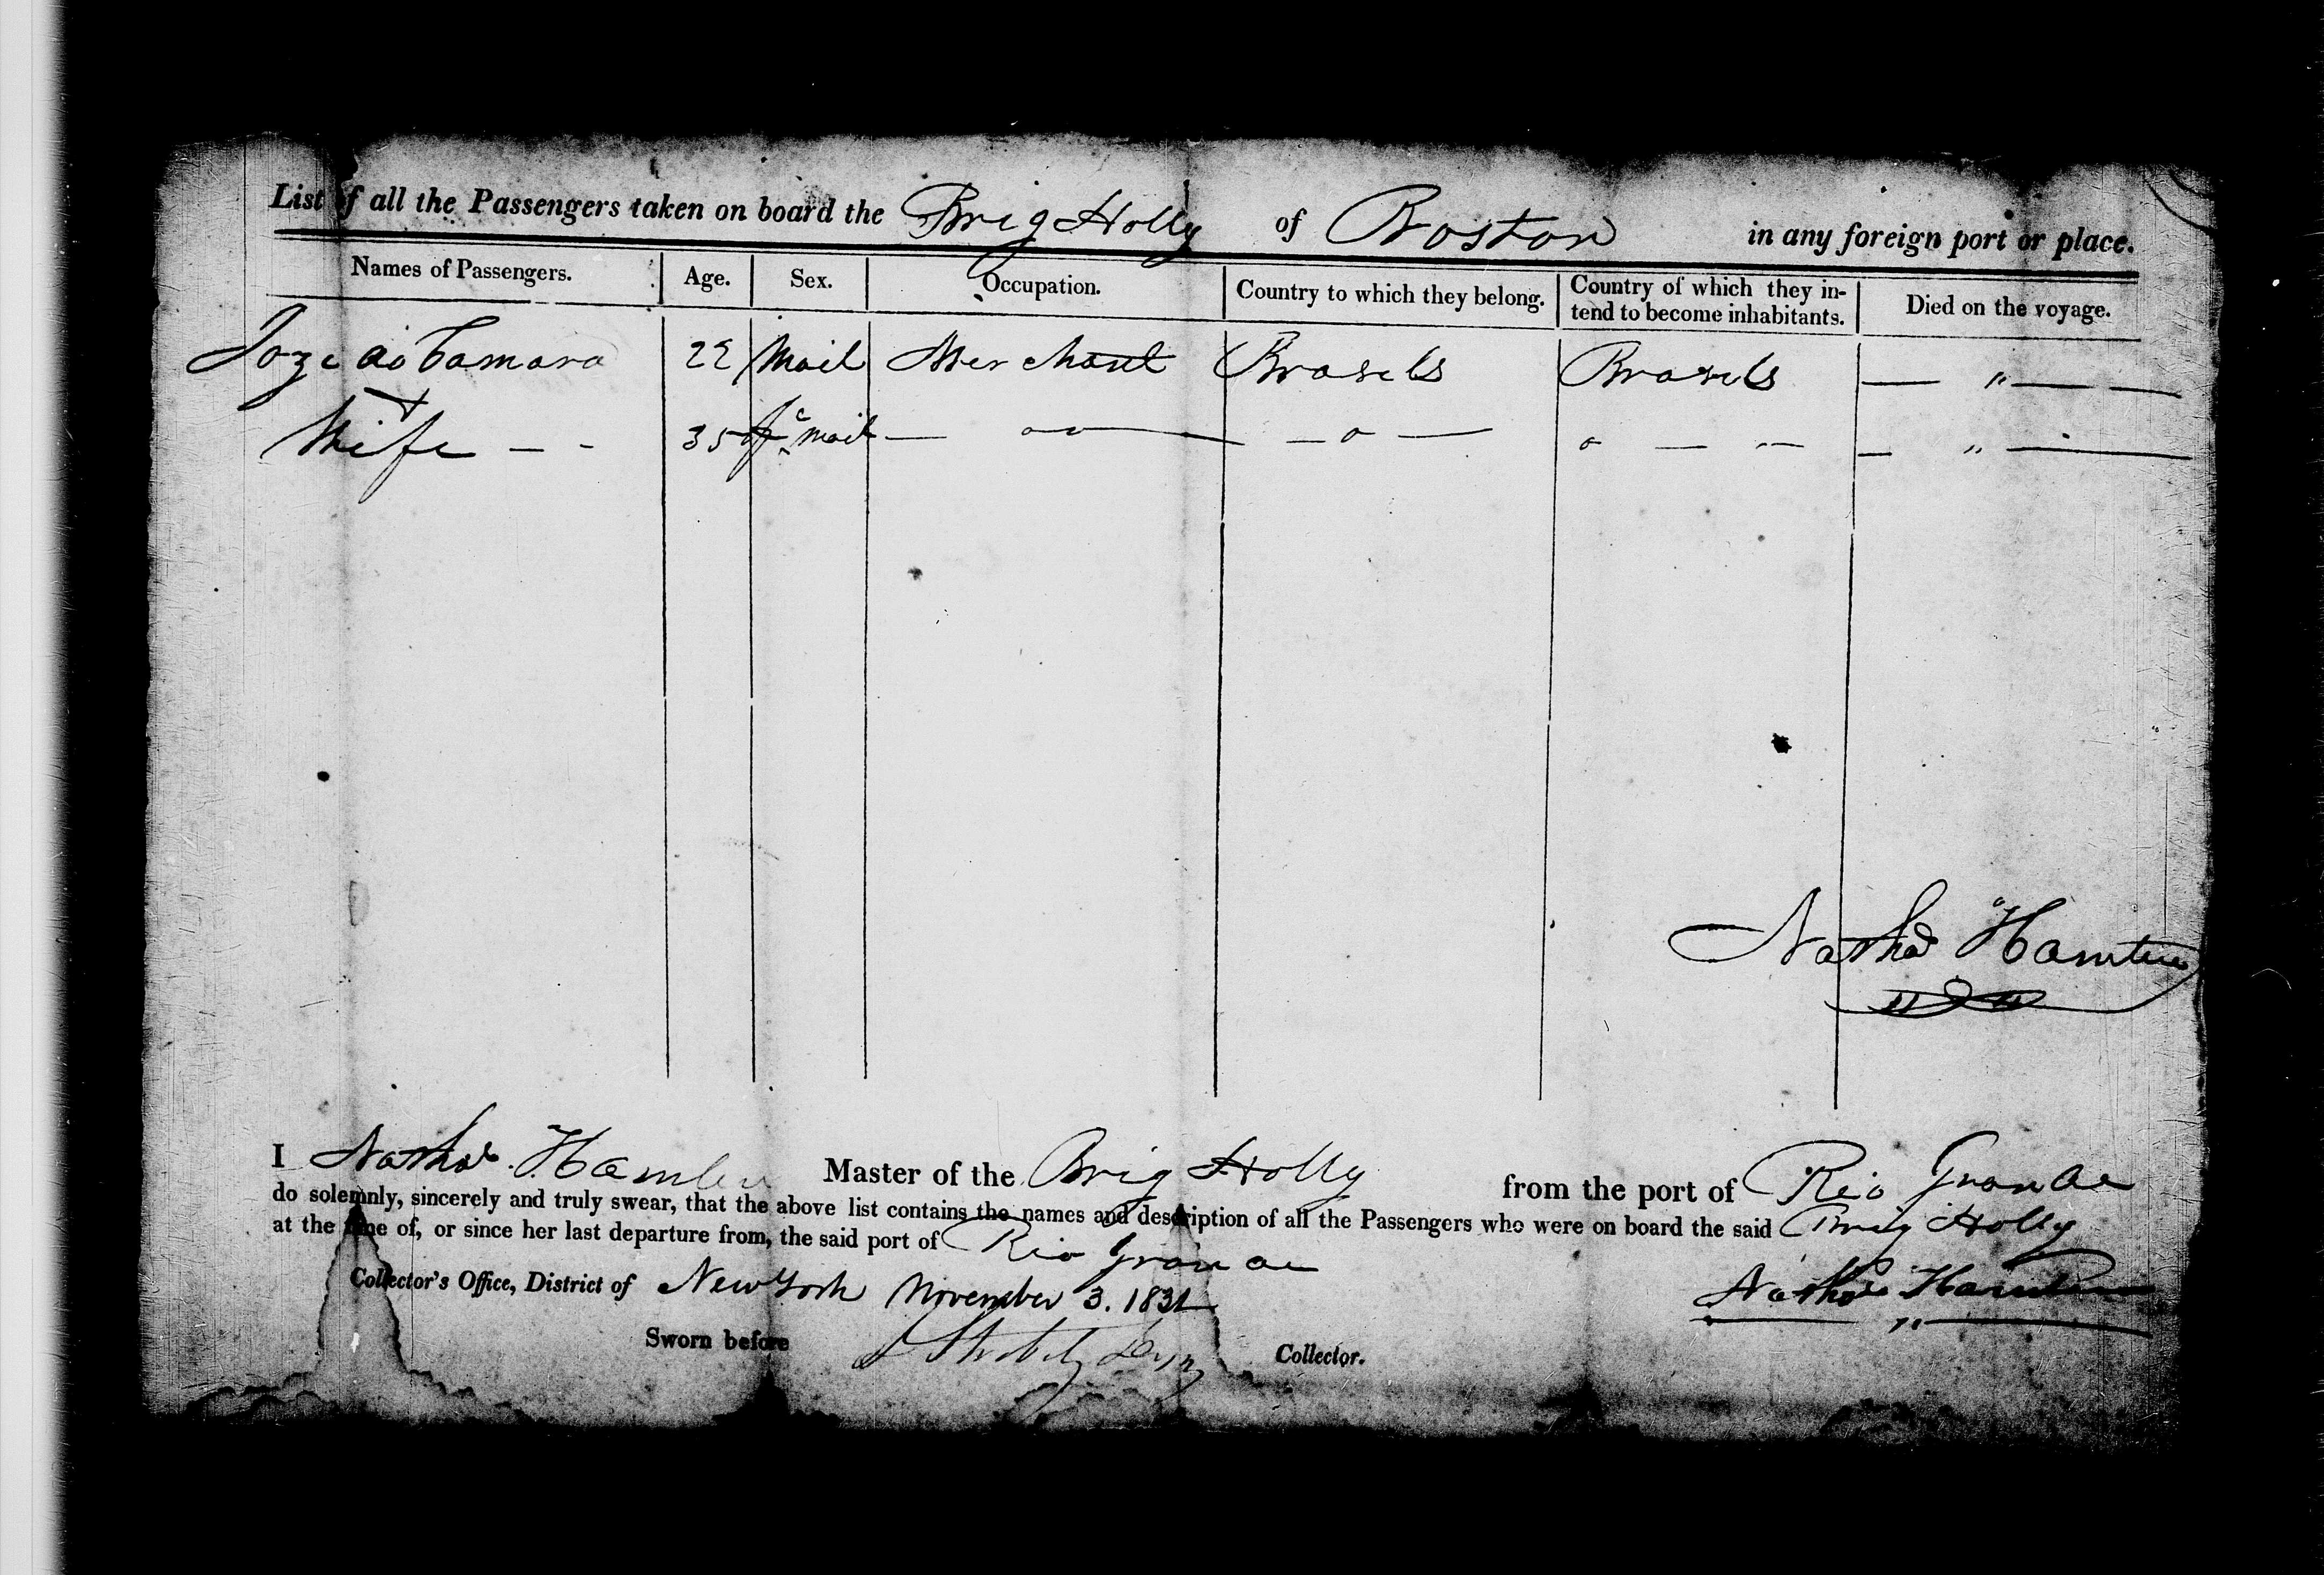 List of all the Passengers taken on board the Brig Holly of Boston in any foreign port or place.
Names of Passengers. Age. Sex. Occupation. Country to which they belong. Country of which they intend to become inhabitants. Died on the voyage.
Joze do Camara 22 Mail Merchant Brasels Brasels — " — —
Wife — - 35 fe mail — " —
Nathl Hamlin
I Nathl Hamlin Master of the Brig Holly from the port of Rio Grande
do solemnly, sincerely and truly swear, that the above list contains the names and description of all the Passengers who were on board the said Brig Holly
at the time of, or since her last departure from, the said port of Rio Grande
Collector's Office, District of New York November 3. 1831
Nathl Hamlin
Sworn before Collector.